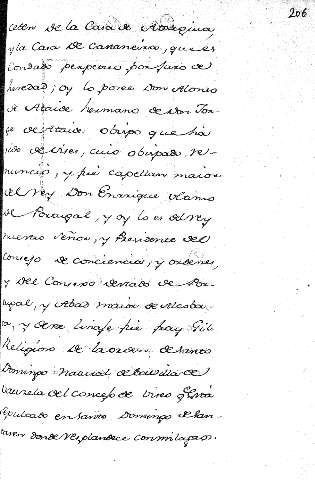 206
ceten de la Casa de Atouguia
y la Casa de Castaneira, que es
Condado perpetuo por juro de
heredad; oy lo posee Don Alonso
de Ataide hermano de Don Jor-
ge de Ataide obispo que ha
sido de viseo, cuio obispado re-
nuncio, y fue capellan maior
del Rey Don Enrrique ultimo
de Portugal, y oy lo es del Rey
nuestro Señor, y Presidente del
consejo de conciencia, y ordenes,
y del Consejo de estado de Por-
tugal, y Abad maior de Alcoba-
za, y deste linaje fue fray Gil
Religioso de la orden de Santo
Domingo natural de la villa de
Vauzela del concejo de viseo q esta
sepultado en Santo Domingo de San-
taren donde resplandece con milagros.